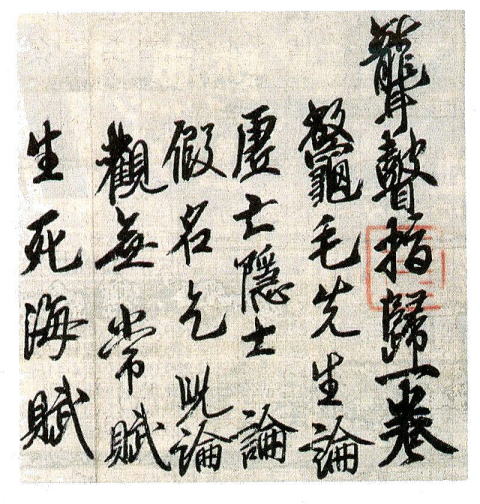 聾瞽指歸一卷
鼈毛先生論
虛亡隱士論
假名乞児論
觀無常賦
生死海賦